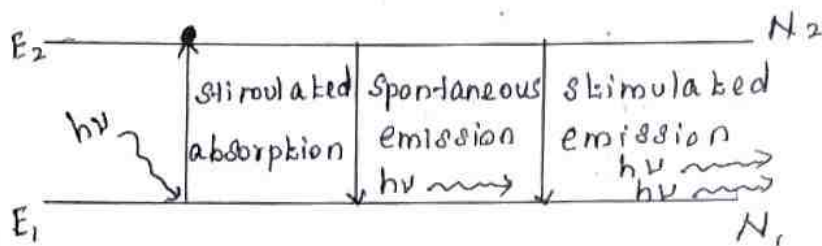 E2
N2
stimulated
absorption
spontaneous
emission
hν
stimulated
emission
hν
hν
hν
E1
N1